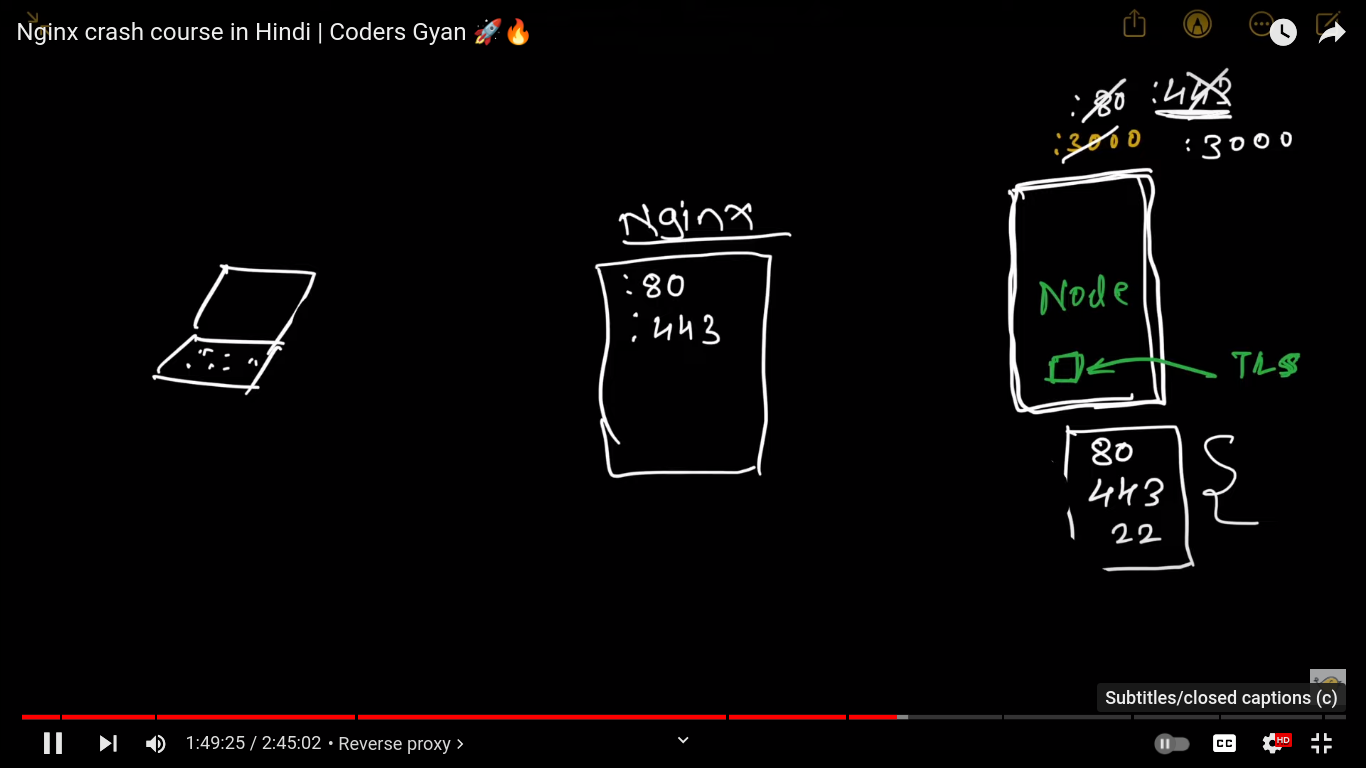 Nginx crash course in Hindi | Coders Gyan 🚀🔥
:80 :443
:3000 :3000
Nginx
:80
:443
Node
TLS
80
443
22
Subtitles/closed captions (c)
1:49:25 / 2:45:02 • Reverse proxy >
CC
HD